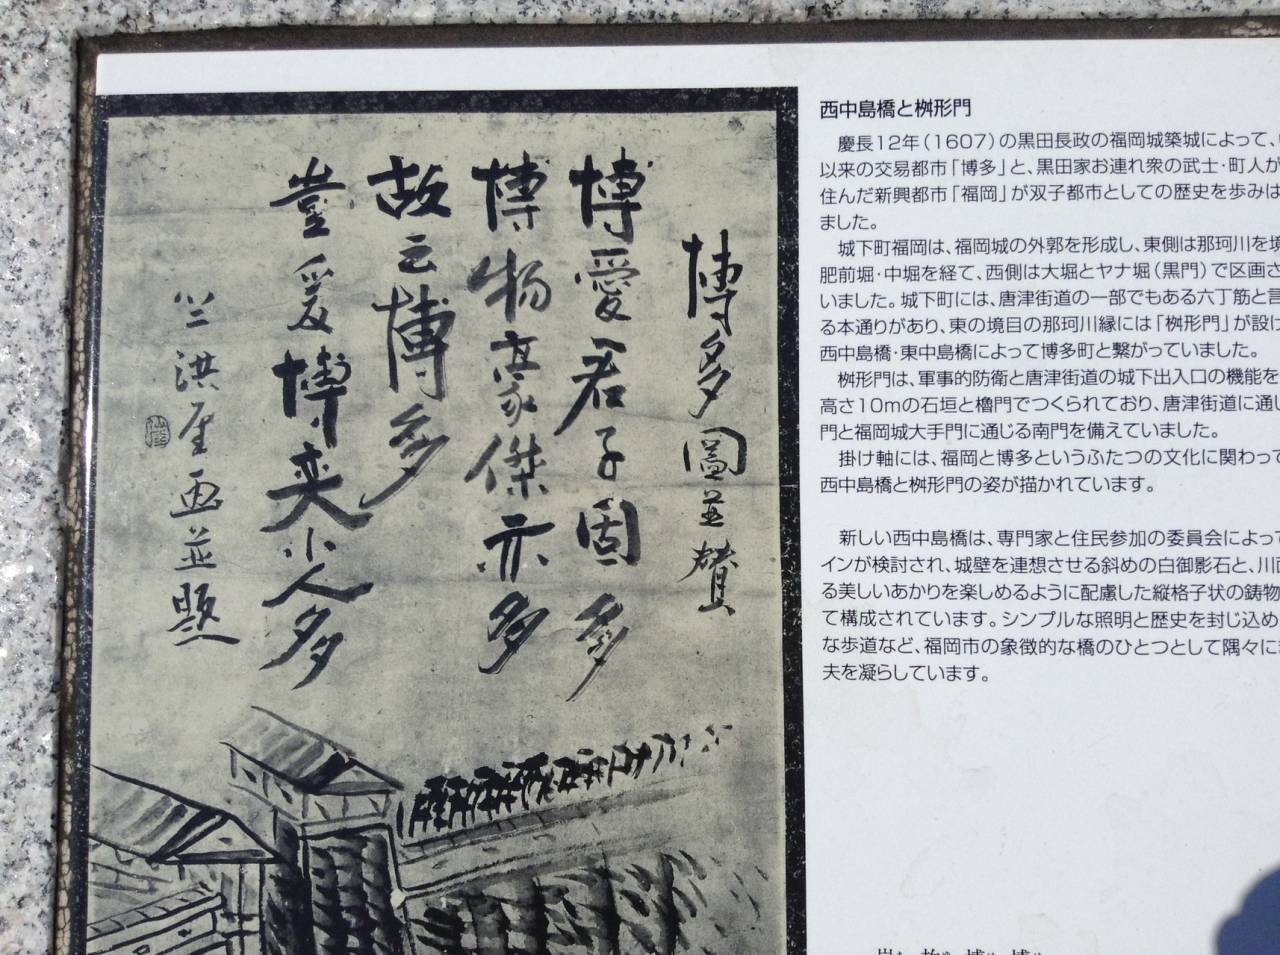 西中島橋と桝形門
慶長12年(1607)の黒田長政の福岡城築城によって、
以来の交易都市「博多」と、黒田家お連れ衆の武士・町人が
住んだ新興都市「福岡」が双子都市としての歴史を歩みは
ました。
城下町福岡は、福岡城の外郭を形成し、東側は那珂川を境
肥前堀・中堀を経て、西側は大堀とヤナ堀(黒門)で区画さ
いました。城下町には、唐津街道の一部でもある六丁筋と言
る本通りがあり、東の境目の那珂川縁には「桝形門」が設け
西中島橋・東中島橋によって博多町と繋がっていました。
桝形門は、軍事的防衛と唐津街道の城下出入口の機能を
高さ10mの石垣と櫓門でつくられており、唐津街道に通じ
門と福岡城大手門に通じる南門を備えていました。
掛け軸には、福岡と博多というふたつの文化に関わって
西中島橋と桝形門の姿が描かれています。
新しい西中島橋は、専門家と住民参加の委員会によって
インが検討され、城壁を連想させる斜めの白御影石と、川面
る美しいあかりを楽しめるように配慮した縦格子状の鋳物
て構成されています。シンプルな照明と歴史を封じ込め
な歩道など、福岡市の象徴的な橋のひとつとして隅々に
夫を凝らしています。
博多圖並賛
博愛君子固多
博物豪傑亦多
故云博多
豈爰博奕小人多
竺洪厓画並題